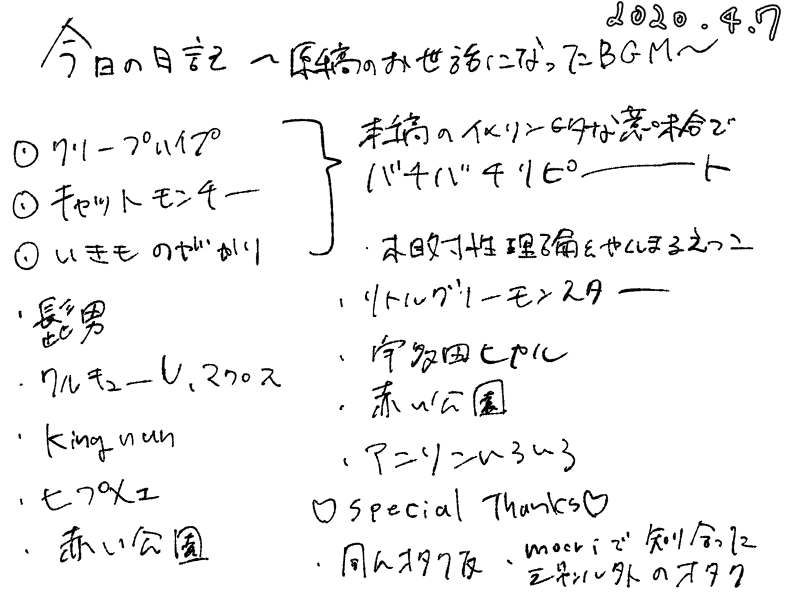 2020.4.7
今日の日記 ~原稿のお世話になったBGM~
クリープハイプ
キャットモンチー
いきものがかり
本稿のイメソンGタな意味合で
バチバチリピーーート
・相対性理論とやくしまるえつこ
・リトルグリーモンスター
・宇多田ヒカル
・赤い公園
・アニソンいろいろ
・髭男
・ワルキューレ、マクロス
・King nun
・ヒプメエ
・赤い公園
♡special Thanks♡
・同人オタク友
・mocriで知り合った
のオタク